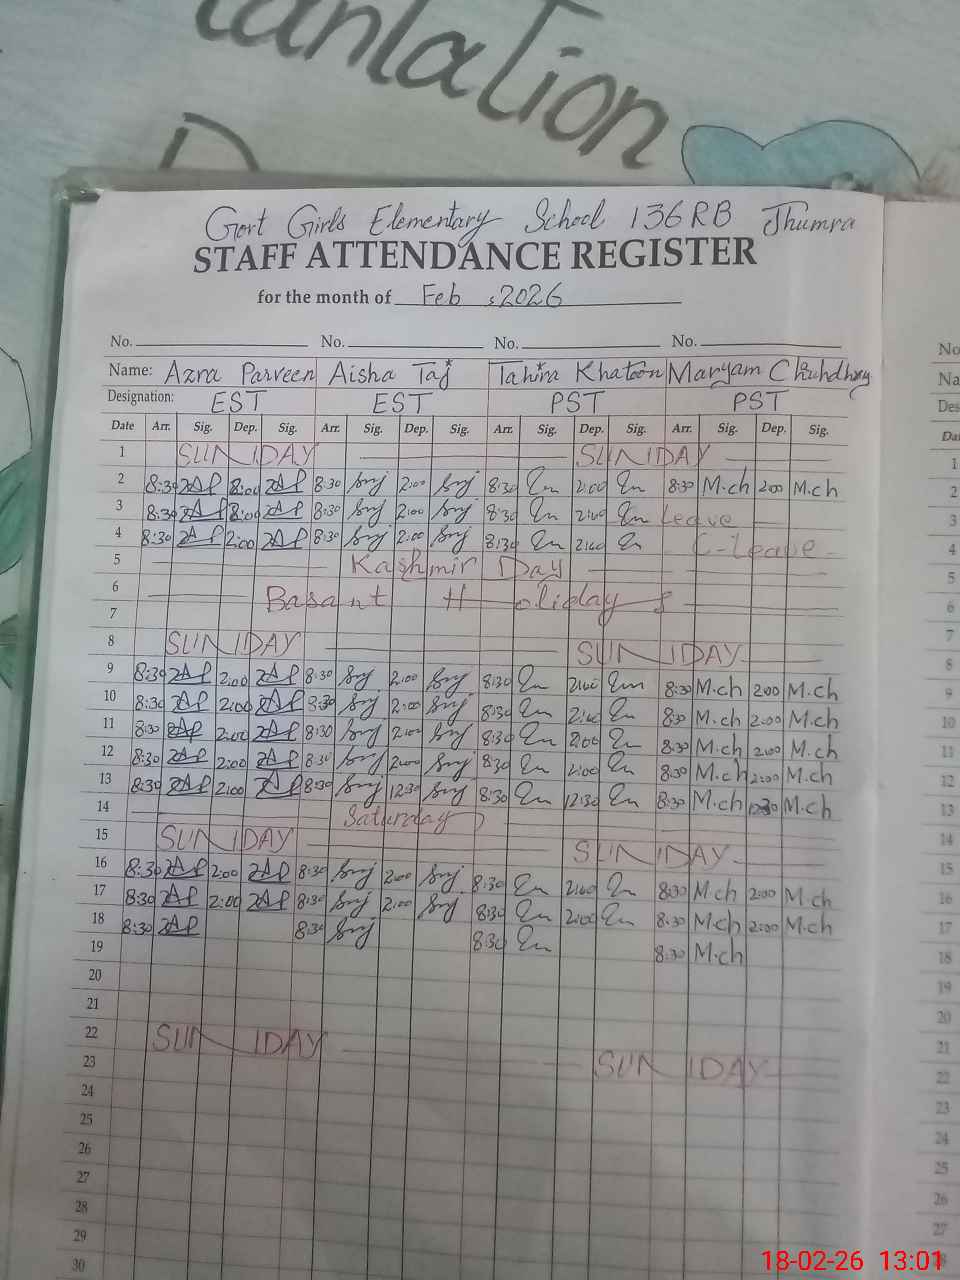 tantation
Govt Girls Elementary School 136 RB Jhumra
STAFF ATTENDANCE REGISTER
for the month of Feb ,2026
No. No. No. No.
No
Name: Azra Parveen Aisha Taj Tahira Khatoon Maryam Chuhdhry
Na
Designation: EST EST PST PST
Des
Date Arr. Sig. Dep. Sig. Arr. Sig. Dep. Sig. Arr. Sig. Dep. Sig. Arr. Sig. Dep. Sig.
Dat
1 SUNDAY SUNDAY 1
2 8:30 8:00 8:30 2:00 8:30 2:00 8:30 M.ch 2:00 M.ch 2
3 8:30 8:00 8:30 2:00 8:30 2:00 Leave 3
4 8:30 2:00 8:30 2:00 8:30 2:00 C-Leave 4
5 Kashmir Day 5
6 Basant Holidays 6
7 7
8 SUNDAY SUNDAY 8
9 8:30 2:00 8:30 2:00 8:30 2:00 8:30 M.ch 2:00 M.ch 9
10 8:30 2:00 8:30 2:00 8:30 2:00 8:30 M.ch 2:00 M.ch 10
11 8:30 2:00 8:30 2:00 8:30 2:00 8:30 M.ch 2:00 M.ch 11
12 8:30 2:00 8:30 2:00 8:30 2:00 8:30 M.ch 2:00 M.ch 12
13 8:30 2:00 8:30 12:30 8:30 12:30 8:30 M.ch 12:30 M.ch 13
14 Saturday 14
15 SUNDAY SUNDAY 15
16 8:30 2:00 8:30 2:00 8:30 2:00 8:30 M.ch 2:00 M.ch 16
17 8:30 2:00 8:30 2:00 8:30 2:00 8:30 M.ch 2:00 M.ch 17
18 8:30 8:30 8:30 8:30 M.ch 18
19 19
20 20
21 21
22 SUNDAY SUNDAY 22
23 23
24 24
25 25
26 26
27 27
28
29
30
18-02-26 13:01